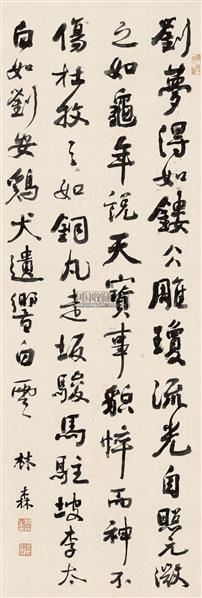 劉夢得如鏤冰雕瓊流光自照元微
之如龜年說天寶事貌悴而神不
傷杜牧之如銅丸走坂駿馬駐坡李太
白如劉安鷄犬遺響白雲
林森